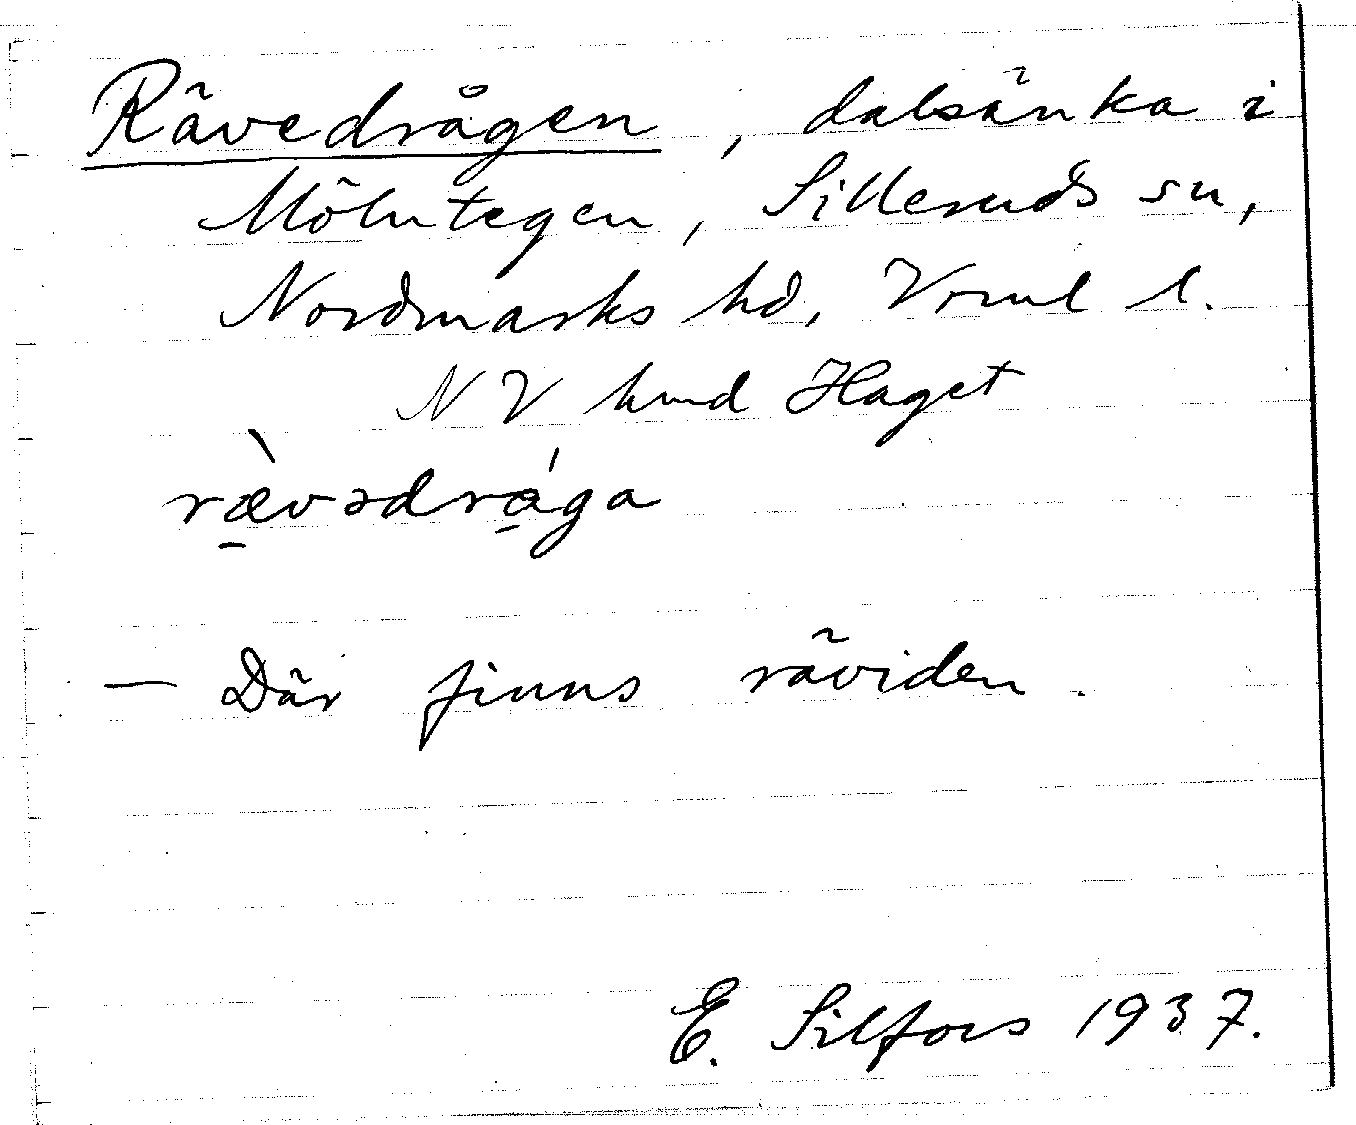 Rävedrågen, dalsänka i
Mölntegen, Silleruds sn,
Nordmarks hd, Vrml l.
NV om Haget
ræ̀vədrá̱ga
— Där finns räviden.
E. Silfors 1937.